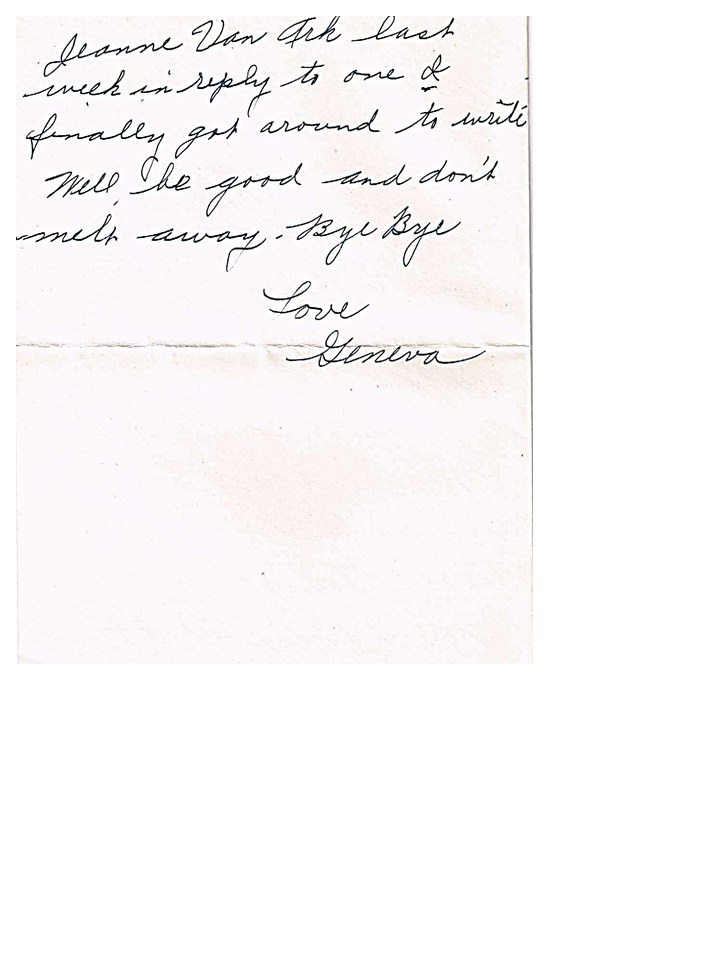 Jeanne Van Ark last
week in reply to one I
finally got around to write
Well, be good and don't
melt away. Bye Bye
Love
Geneva